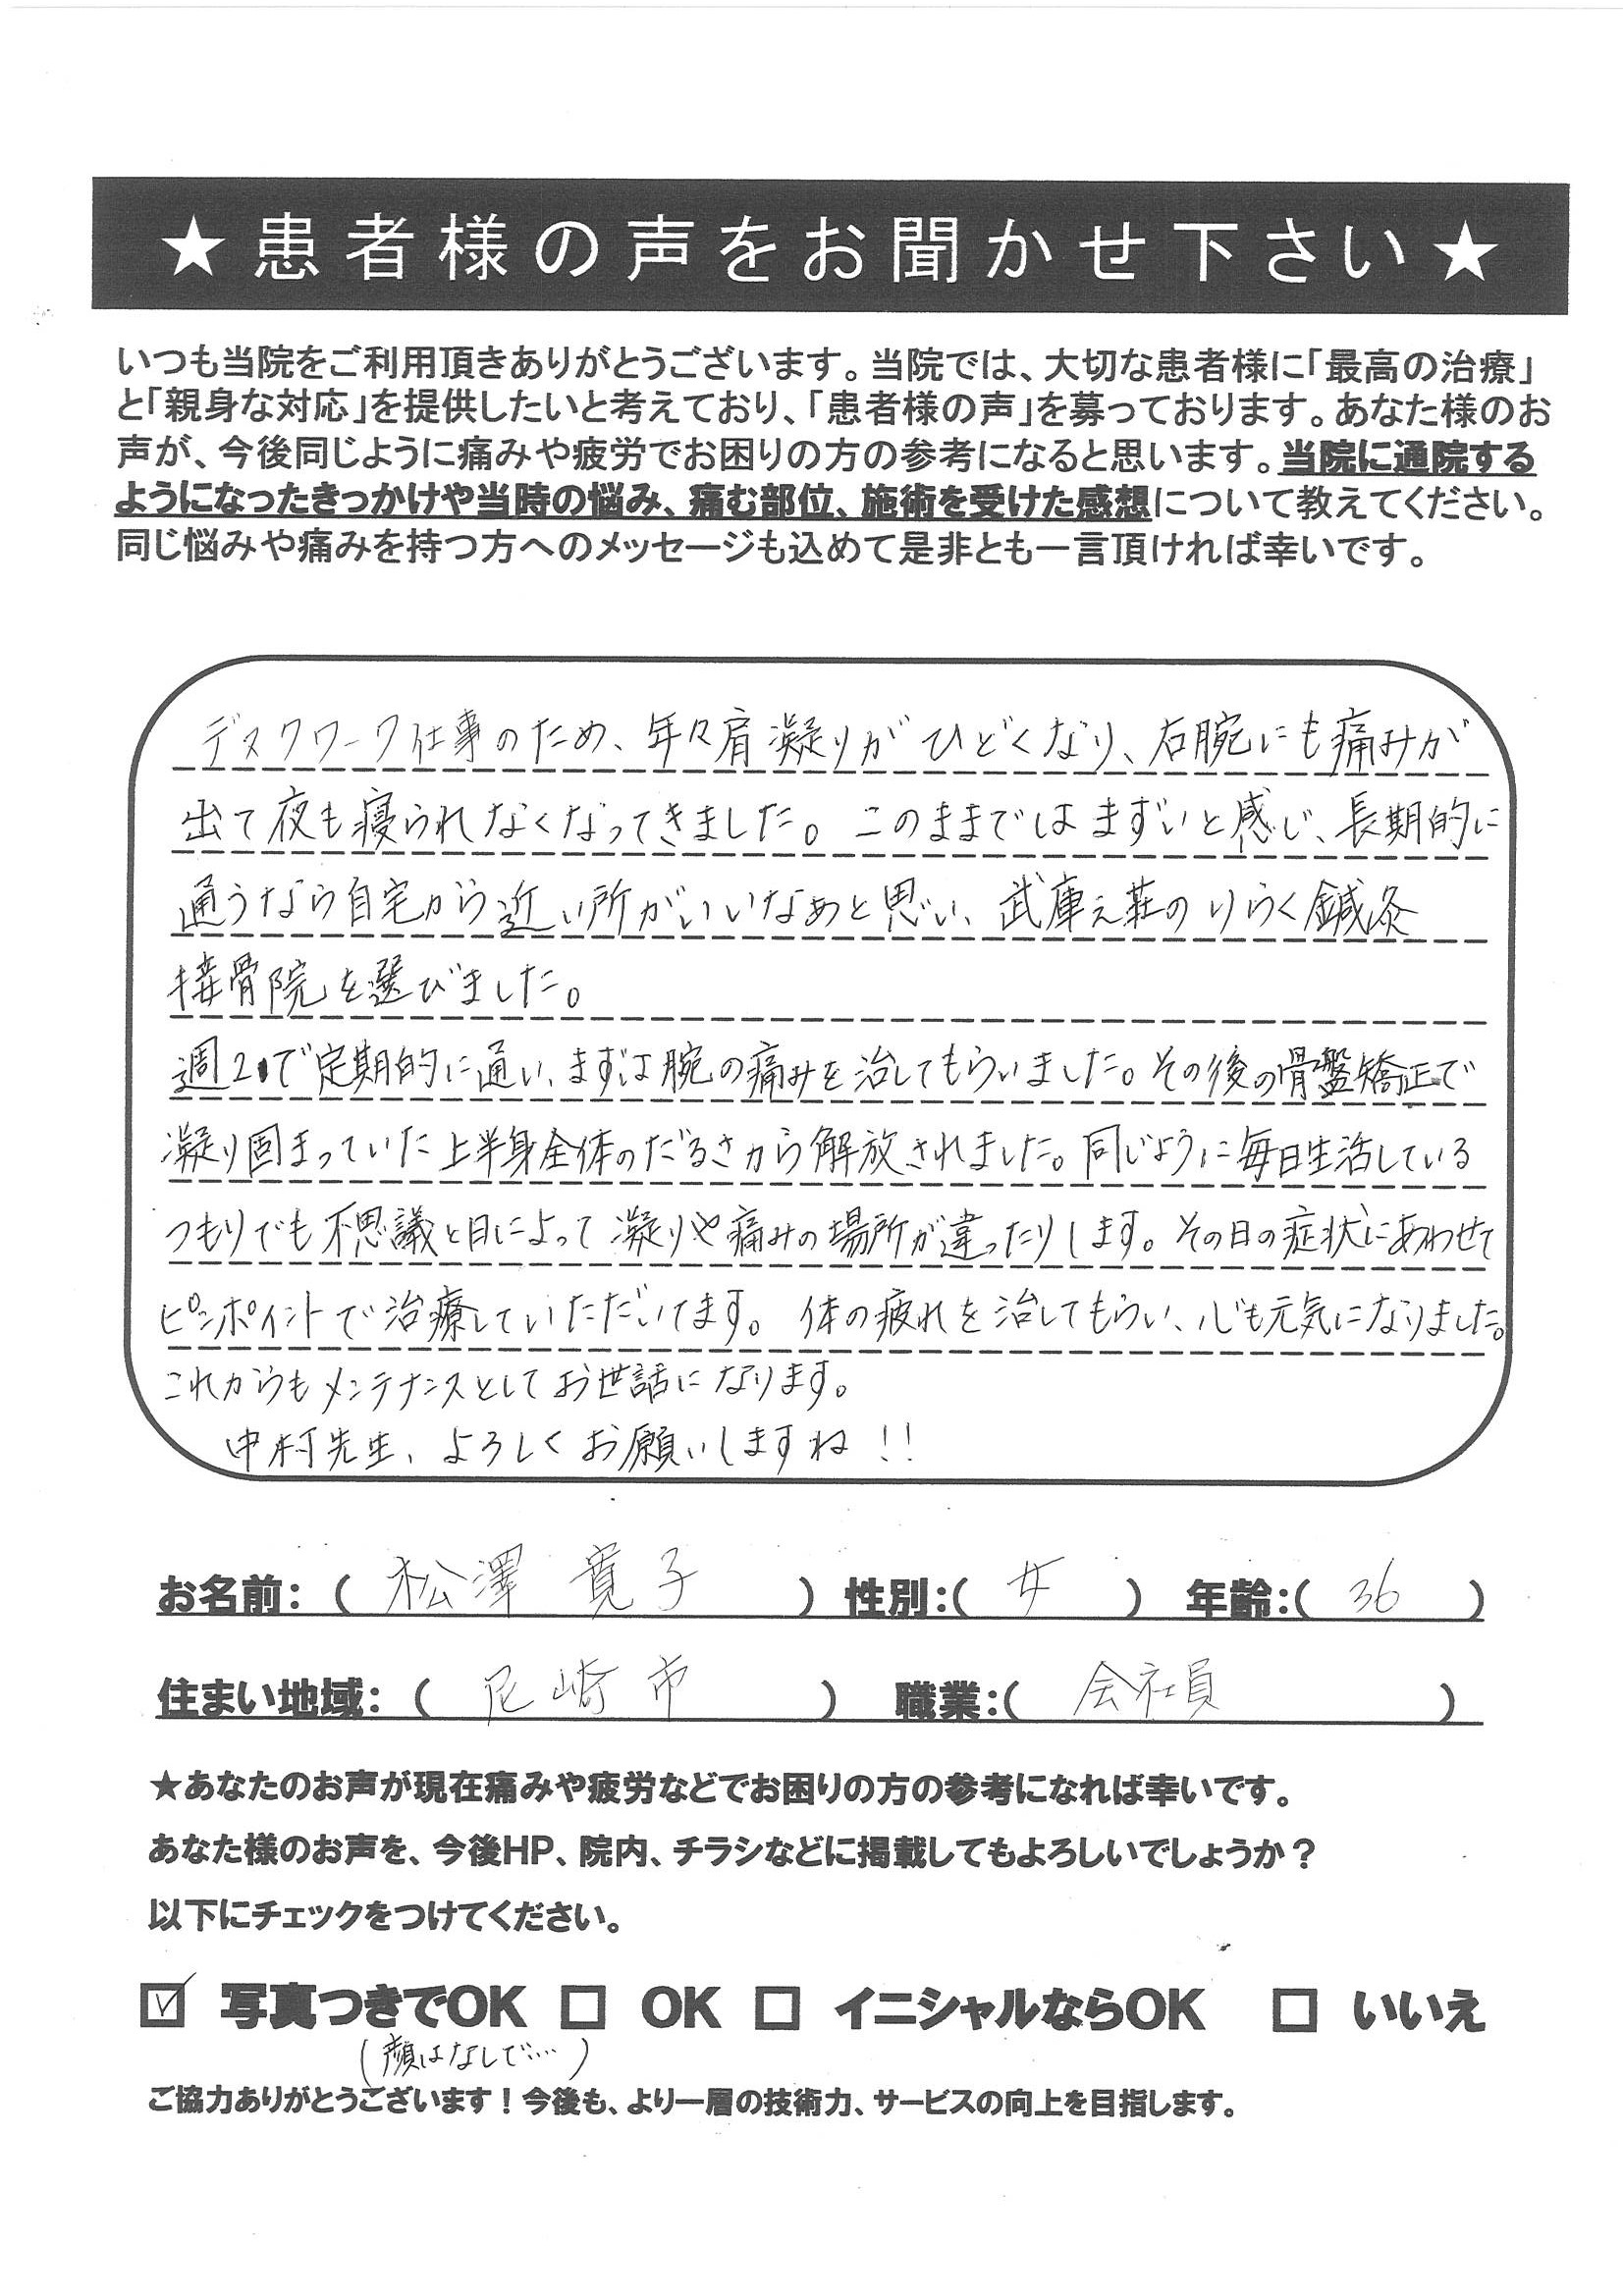 ★患者様の声をお聞かせ下さい★
いつも当院をご利用頂きありがとうございます。当院では、大切な患者様に「最高の治療」
と「親身な対応」を提供したいと考えており、「患者様の声」を募っております。あなた様のお
声が、今後同じように痛みや疲労でお困りの方の参考になると思います。当院に通院する
ようになったきっかけや当時の悩み、痛む部位、施術を受けた感想について教えてください。
同じ悩みや痛みを持つ方へのメッセージも込めて是非とも一言頂ければ幸いです。
デスクワーク仕事のため、年々肩凝りがひどくなり、右腕にも痛みが
出て夜も寝られなくなってきました。このままではまずいと感じ、長期的に
通うなら自宅から近い所がいいなあと思い、武庫之荘のりらく鍼灸
接骨院を選びました。
週2で定期的に通い、まずは腕の痛みを治してもらいました。その後の骨盤矯正で
凝り固まっていた上半身全体のだるさから解放されました。同じように毎日生活している
つもりでも不思議と日によって凝りや痛みの場所が違ったりします。その日の症状にあわせて
ピンポイントで治療していただいてます。体の疲れを治してもらい、心も元気になりました。
これからもメンテナンスとしてお世話になります。
中村先生、よろしくお願いしますね!!
お名前：（ 松澤 寛子 ） 性別：（ 女 ） 年齢：（ 36 ）
住まい地域：（ 尼崎市 ） 職業：（ 会社員 ）
★あなたのお声が現在痛みや疲労などでお困りの方の参考になれば幸いです。
あなた様のお声を、今後HP、院内、チラシなどに掲載してもよろしいでしょうか？
以下にチェックをつけてください。
☑ 写真つきでOK □ OK □ イニシャルならOK □ いいえ
（顔はなしで…）
ご協力ありがとうございます！今後も、より一層の技術力、サービスの向上を目指します。